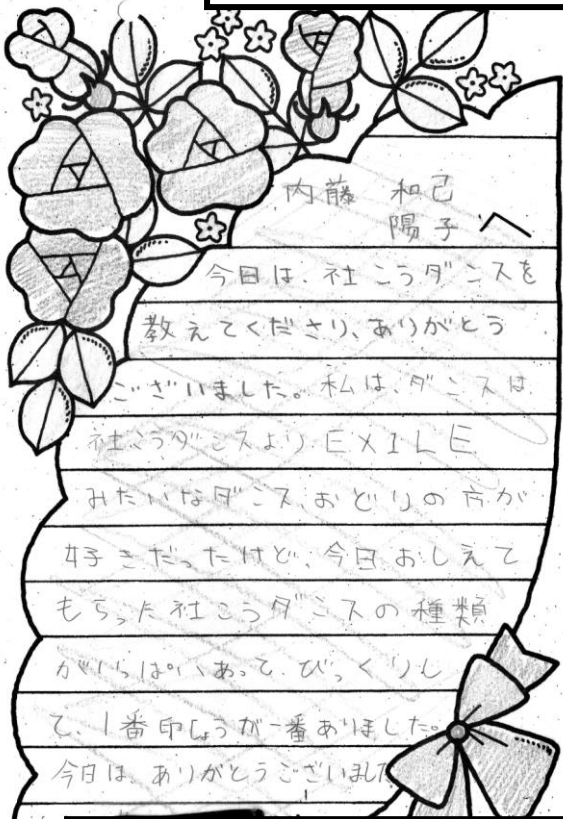 内藤 和己
陽子 へ
今日は、社こうダンスを
教えてくださり、ありがとう
ございました。私は、ダンスは
社こうダンスより EXILE
みたいなダンス、おどりの方が
好きだったけど、今日おしえて
もらった社こうダンスの種類
がいっぱいあって、びっくりし
て、1番印しょうが一番ありました。
今日は、ありがとうございました